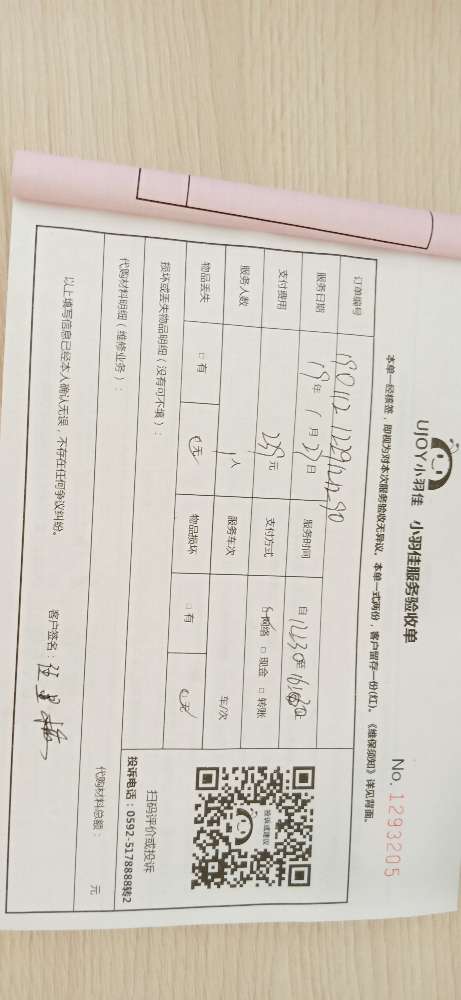 UJOY小羽佳 小羽佳服务验收单
No. 1293205
本单一经核签，即视为对本次服务验收无异议。本单一式两份，客户留存一份(红)。《维保须知》详见背面。
订单编号
服务日期 19年 1月 27日 服务时间 自 12:30至 16:30
支付费用 239元 支付方式 网络 □ 现金 □ 转账
服务人数 1人 服务车次 车/次
物品丢失 □ 有 无 物品损坏 □ 有 无
损坏或丢失物品明细（没有可不填）：
投诉或建议
扫码评价或投诉
投诉电话：0592-5178888转2
代购材料明细（维修业务）：
代购材料总额： 元
以上填写信息已经本人确认无误，不存在任何争议纠纷。
客户签名：